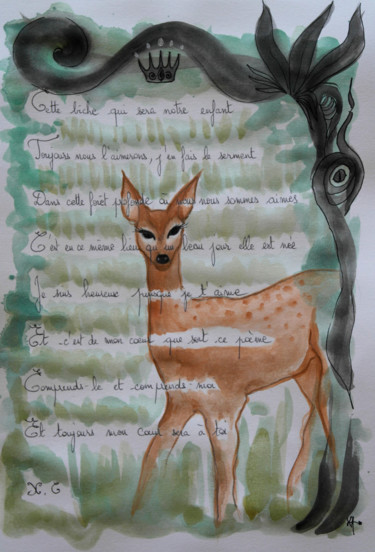 Cette biche qui sera notre enfant
Toujours nous l'aimerons, j'en fais le serment
Dans cette forêt profonde où nous nous sommes aimés
C'est en ce même lieu qu'un beau jour elle est née
Je suis heureux puisque je t'aime
Et c'est de mon cœur que sort ce poème
Comprends-le et comprends-moi
Et toujours mon cœur sera à toi
X. G